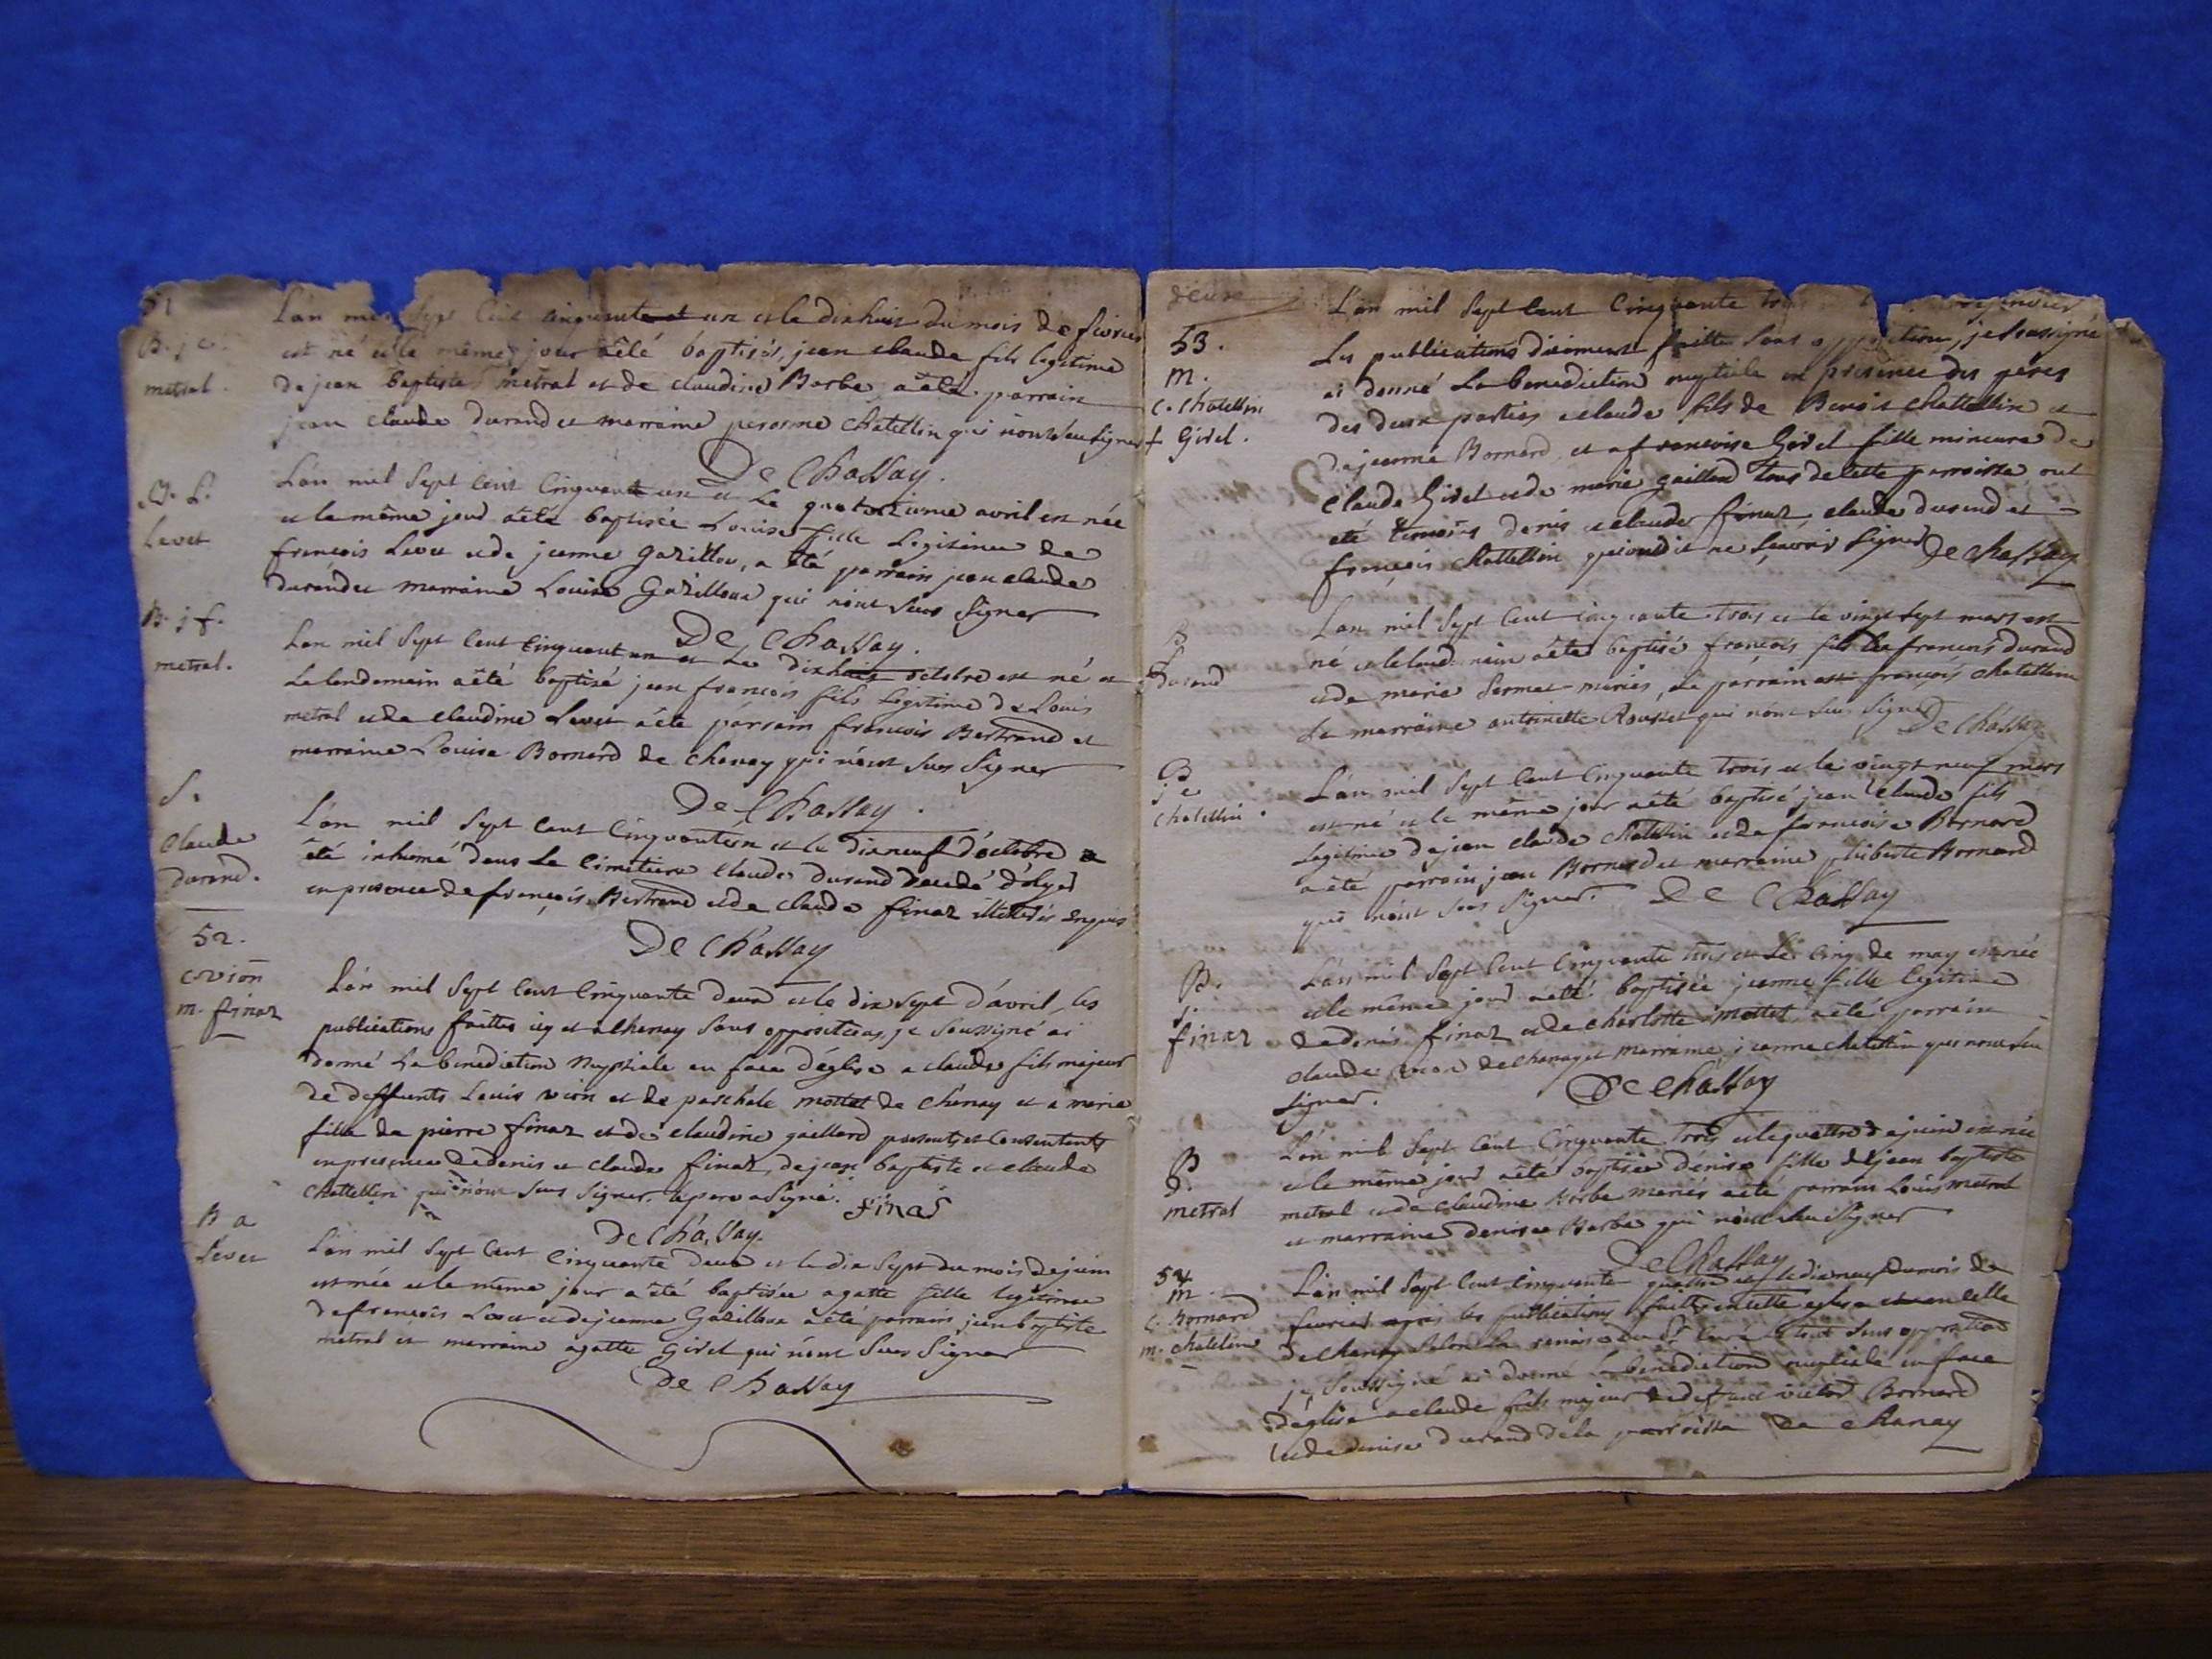 51
B. j c.
metral.
L'an mil Sept Cent cinquante et un et le dix huit du mois de fevrier
est né et le même jour a êté baptisé, jean claude fils legitime
de jean baptiste metral et de claudine Barbe, a êté parrain
jean claude durand et marraine chatellin qui n'ont sceu signer
De Chassay.
B. L.
Levet
L'an mil Sept Cent Cinquante un et Le quatorzieme avril est née
et le même jour a êté baptisée Louise fille Legitime de
francois Levet et de jeanne gazilloux, a êté parrain jean claude
durand et marraine Louise Gazilloux qui n'ont sceu signer
De Chassay.
B. j f.
metral.
L'an mil Sept Cent Cinquant un et Le dix huit octobre est né et
Le lendemain a êté baptisé jean francois fils Legitime de Louis
metral et de claudine Levet a êté parrain francois Bertrand et
marraine Louise Bornard de chanay qui n'ont sceu signer
De Chassay.
S.
Claude
durand.
L'an mil Sept Cent Cinquante un et le dix neuf d'octobre a
êté inhumé dans Le Cimetiere Claude durand
en presence de françois Bertrand et de claude finaz illiterés enquis
De Chassay
52.
c. vion
m. finaz
L'an mil Sept Cent Cinquante deux et le dix sept d'avril, les
publications faittes icy et a chanay Sans opposition, je Soussigné ai
donné La benediction Nuptiale en face d'église a claude fils majeur
de deffunts Louis vion et de paschale mottet de chanay et a marie
fille de pierre finaz et de claudine gaillard presents et Consentents
en presence de denis et claude finaz, de jean baptiste et claude
chattellin qui n'ont sceu signer. le pere a signé. finas
De Chassay.
B a
Levet
L'an mil Sept Cent Cinquante deux et le dix Sept du mois de juin
est née et le même jour a êté baptisée agatte fille legitime
de françois Levet et de jeanne Gazilloux a êté parrain jean baptiste
metral et marraine agatte Girel qui n'ont sceu signer
De Chassay
deux
53.
m.
c. chatellin
f Girel.
L'an mil Sept Cent Cinquante trois janvier
Les publications düement faittes Sans opposition, je Soussigné
ai donné La benediction nuptiale en presence des peres
des deux parties a claude fils de Benoit chattellin et
de jeanne Bornard et a francoise Girel fille mineure de
claude Girel et de marie gaillard tous de cette parroisse ont
eté temoins denis et claude finaz, claude durand et
francois chattellin qui ont dit ne sçavoir signer De chassay
B
f
durand
L'an mil Sept Cent cinquante trois et le vingt sept mars est
né et le landemain a êté baptisé francois fils de francois durand
et de marie mariés, le parrain est françois chatellin
La marraine antoinette Rousset qui n'ont sceu signer De Chassay
B
j c
chatellin.
L'an mil Sept Cent Cinquante trois et le vingt neuf mars
est né et le même jour a êté baptisé jean Claude fils
Legitime de jean claude chatellin et de francoise Bornard
a êté parrain jean Bornard et marraine philiberte Bornard
qui n'ont sceu signer. De Chassay
B.
j.
finaz
L'an mil Sept Cent Cinquante trois et Le Cinq de may est née
et le même jour a êté baptisée jeanne fille legitime
de denis finaz et de charlotte mottet, a êté parrain
claude vion de chanay et marraine jeanne chatellin qui n'ont sceu
signer. De Chassay
B
D.
metral
L'an mil Sept Cent Cinquante trois et le quattre de juin est née
et le même jour a êté baptisée denise fille de jean baptiste
metral et de claudine Barbe mariés a êté parrain Louis metral
et marraine denise Barbe qui n'ont sceu signer
De Chassay
54
m.
c. Bornard
m. chatelline
L'an mil Sept Cent Cinquante quattre et le dix neuf du mois de
fevrier apres les publications faittes en cette eglise et en celle
de chanay Selon La remise du Sr Curé le tout Sans opposition
je Soussigné ai donné La benediction nuptiale en face
d'église a claude fils majeur de deffunt victor Bornard
et de denise durand de la parroisse de chanay